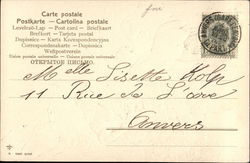 Carte postale
Postkarte - Cartolina postale
Levelezö-Lap - Post card - Briefkaart
Brefkort - Tarjeta postal
Dopisnice - Karta Korespondencyjna
Correspondenzkarte - Dopisnica
Weltpostverein
Union postale universelle - Unione postale universale
ОТКРЫТОЕ ПИСЬМО.
Melle Lisette
11 Rue de
Anvers